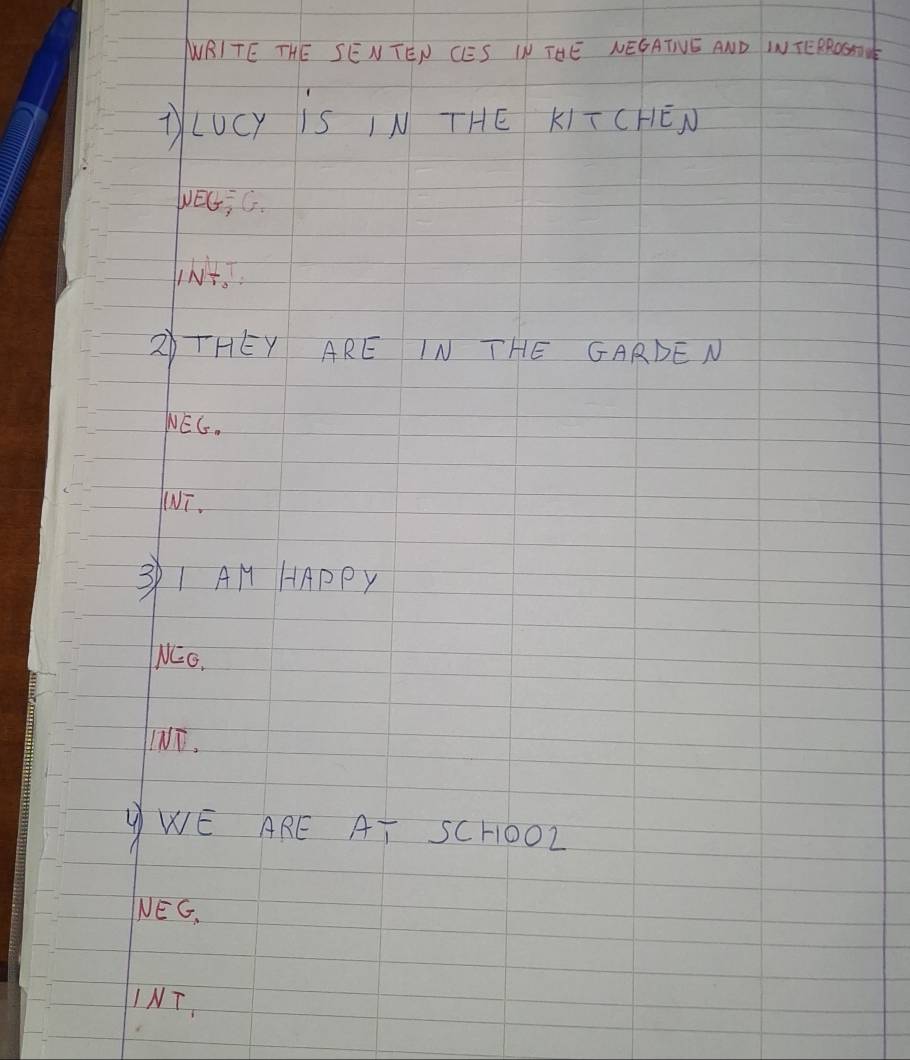 WRITE THE SENTENCES IN THE NEGATIVE AND INTERROGATIVE
1) LUCY IS IN THE KITCHEN
NEG; G.
INT.
2) THEY ARE IN THE GARDEN
NEG.
INT.
3) I AM HAPPY
NEG.
INT.
4) WE ARE AT SCHOOL
NEG.
INT.